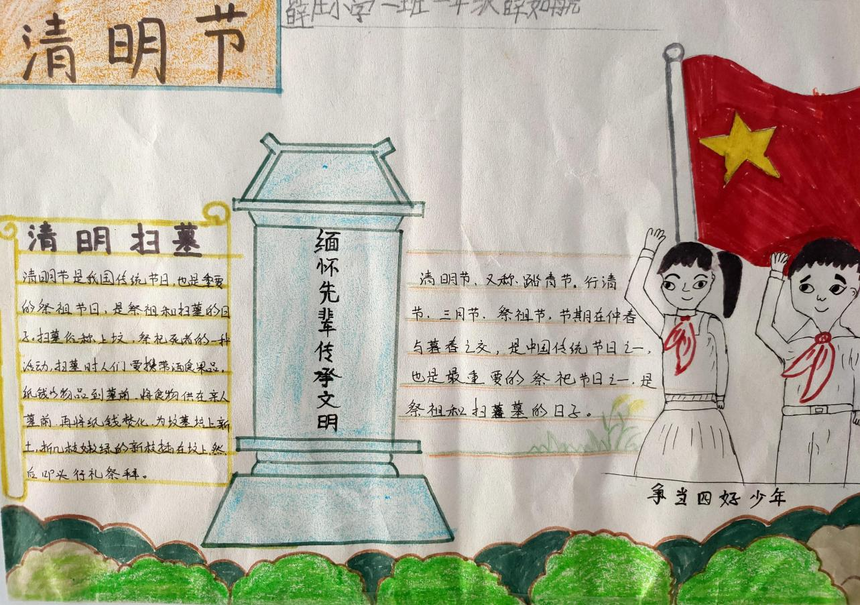 清明节
薛庄小学一班一年级薛如航
清明扫墓
清明节是我国传统节日,也是重要
的祭祖节日,是祭祖和扫墓的日
子,扫墓俗称上坟,祭祀死者的一种
活动,扫墓时人们要携带酒食果品,
纸钱等物品到墓前,将食物供在亲人
墓前,再将纸钱焚化,为坟墓培上新
土,折几枝嫩绿的新枝插在坟上,然
后叩头行礼祭拜。
缅怀先辈传承文明
清明节,又称踏青节,行清
节、三月节、祭祖节,节期在仲春
与暮春之交,是中国传统节日之一,
也是最重要的祭祀节日之一,是
祭祖和扫墓的日子。
争当四好少年